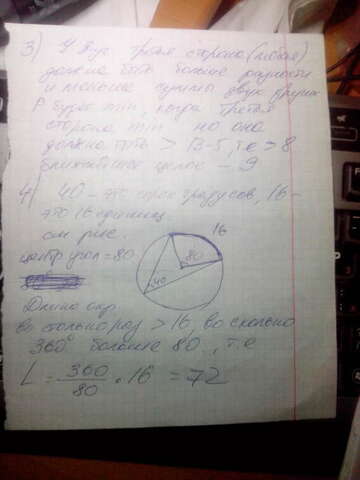 3) У Δука третья сторона (любая)
должна быть больше разности
и меньше суммы двух других
P будет min, когда третья
сторона min но она
должна быть > 13-5, т.е > 8
ближайшее целое - 9
4) 40 - это градусов, 16 -
это 16 единиц
см рис.
16
центр угол = 80
80
40
Длина окр.
во столько раз > 16, во сколько
360° больше 80, т.е
L = 360/80 • 16 = 72